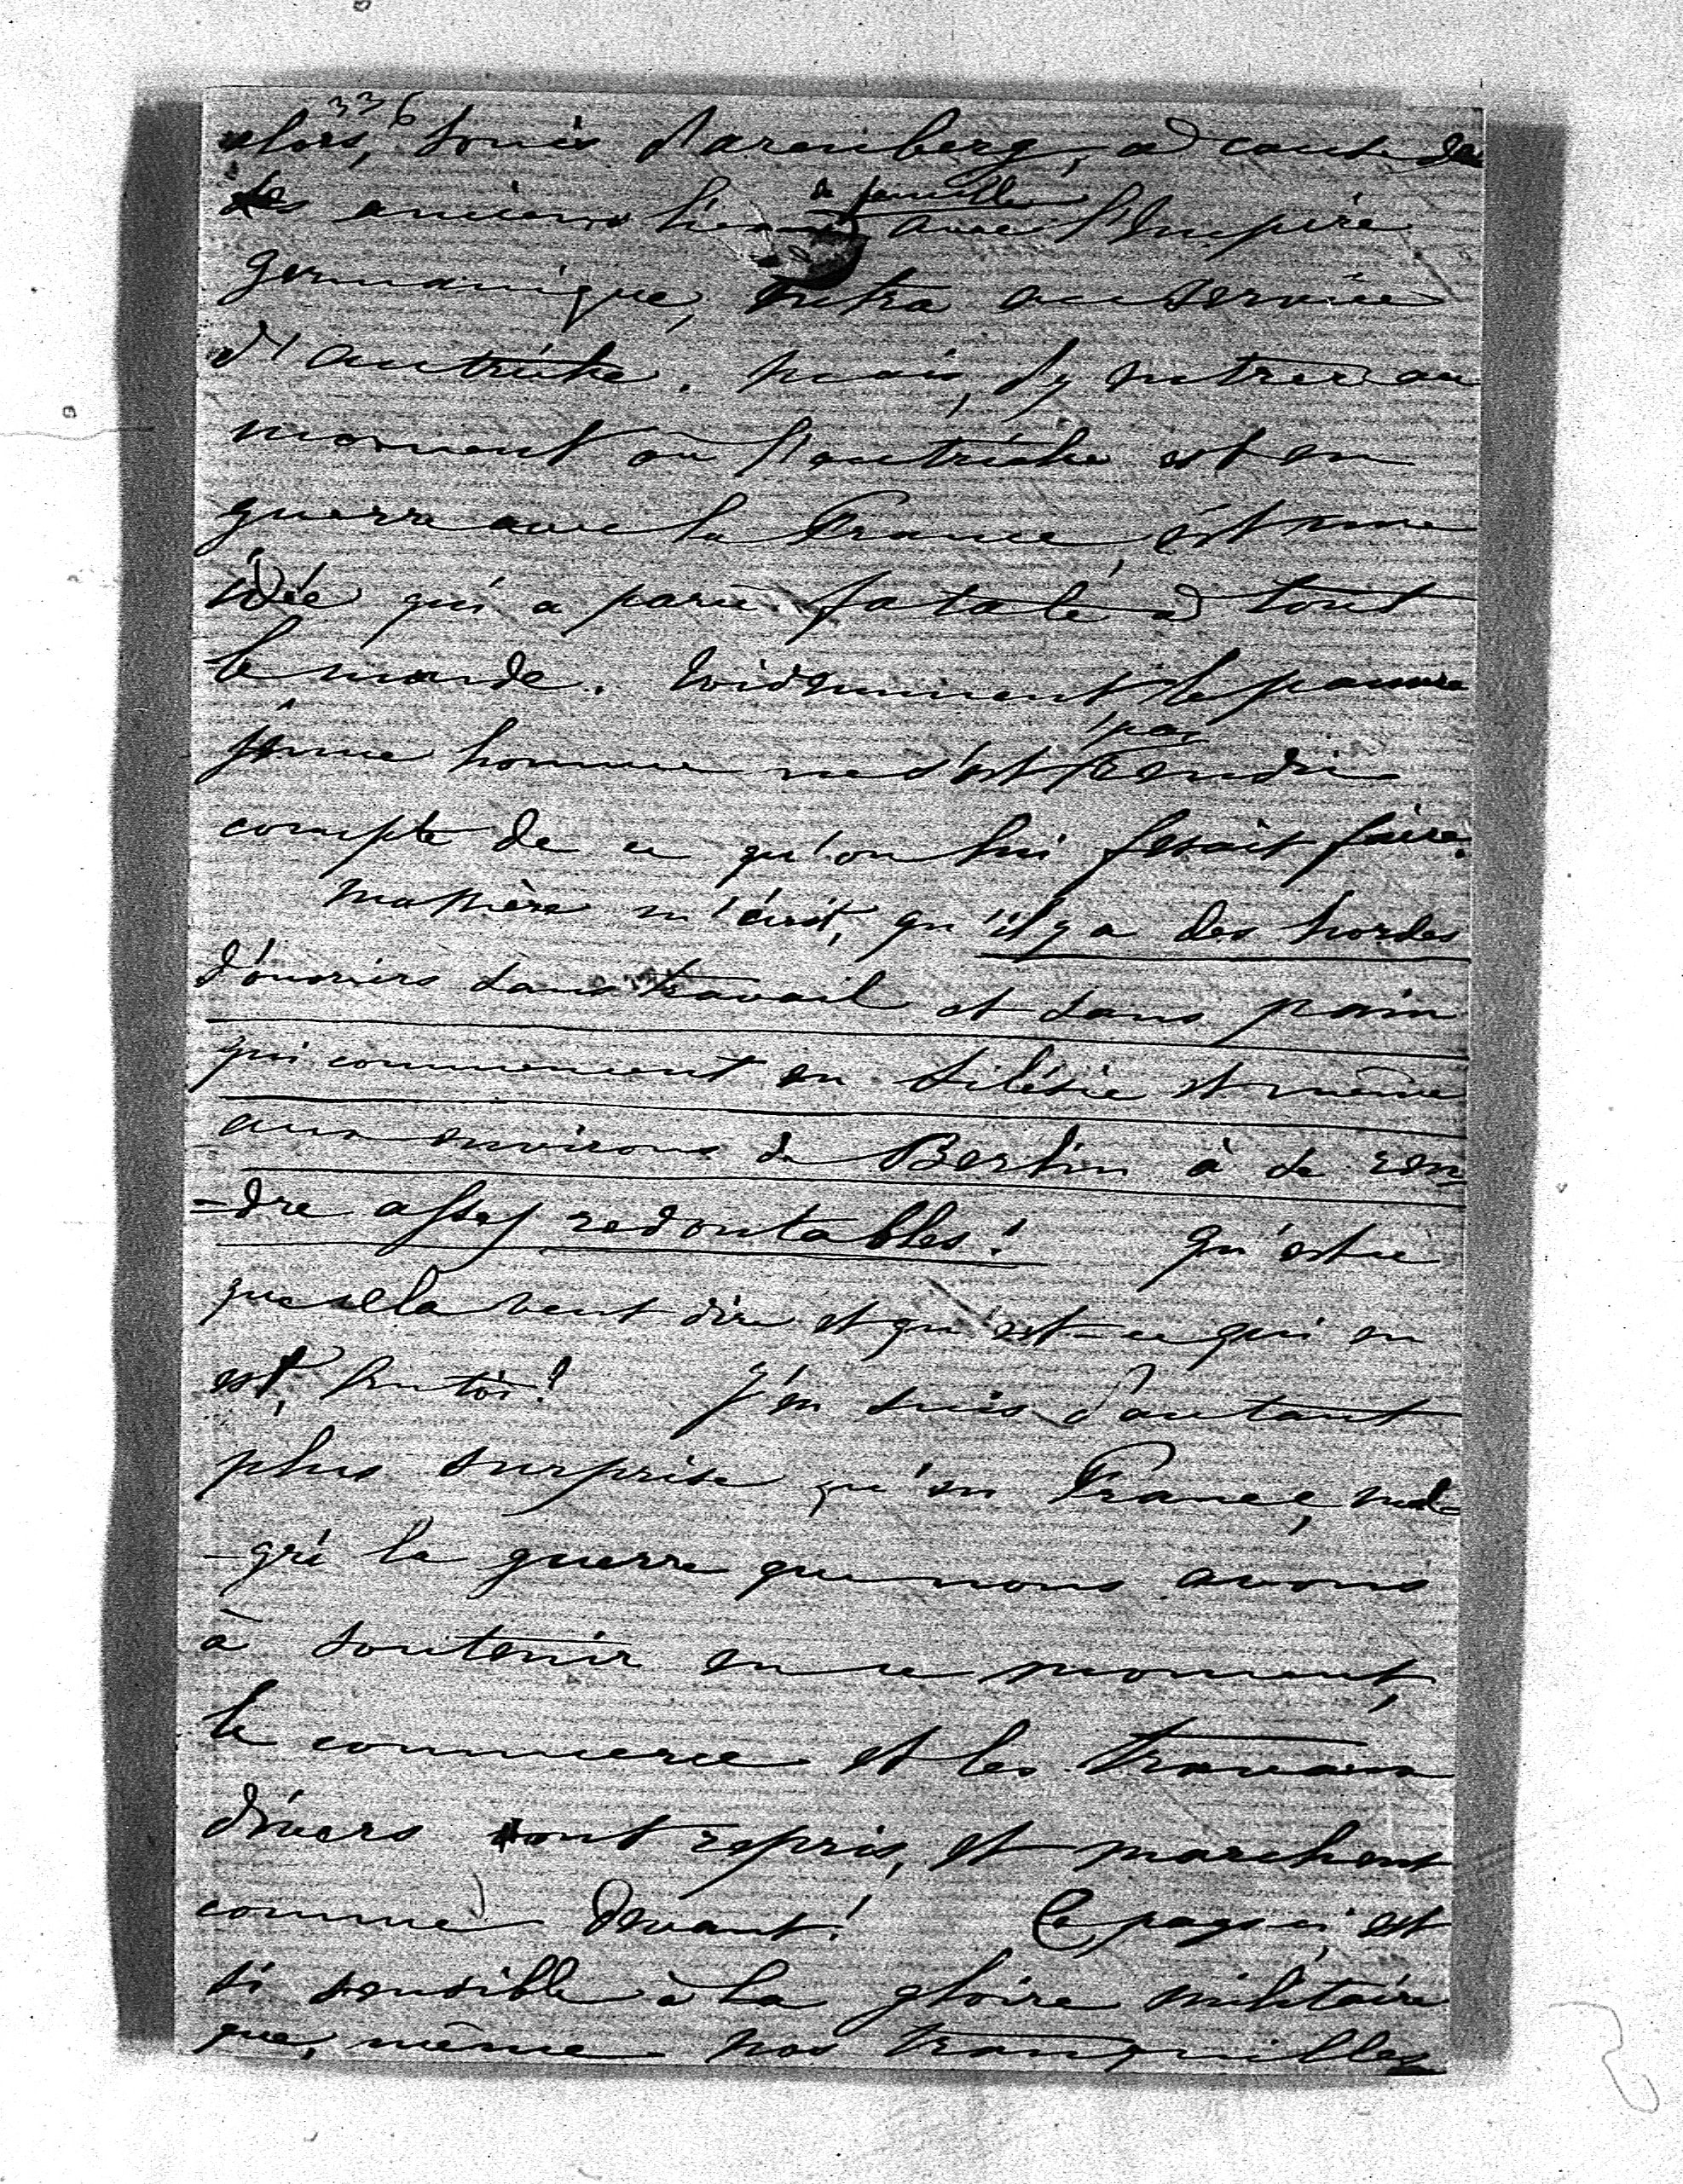 336
alors, Louis d'Arenberg, à cause de
ses anciens liens de famille avec l'Empire
germanique, entra au service
d'Autriche. Mais, d'y entrer au
moment où l'Autriche est en
guerre avec la France, est une
idée qui a paru fatale à tout
le monde. Evidemment, le pauvre
jeune homme ne s'est pas rendu
compte de ce qu'on lui fesait faire.
m'écrit, qu'il y a des hordes
d'ouvriers sans travail et sans pain
qui commencent en Silésie et même
aux environs de Berlin à se ren-
-dre assez redoutables! Qu'est ce
que cela veut dire et qu'est-ce qui en
est, J'en suis d'autant
plus surprise qu'en France, mal-
-gré la guerre que nous avons
à soutenir en ce moment,
le commerce et les travaux
divers ont repris, et marchent
comme devant! Ce pays ci est
si sensible à la gloire militaire
que, même nos tranquilles